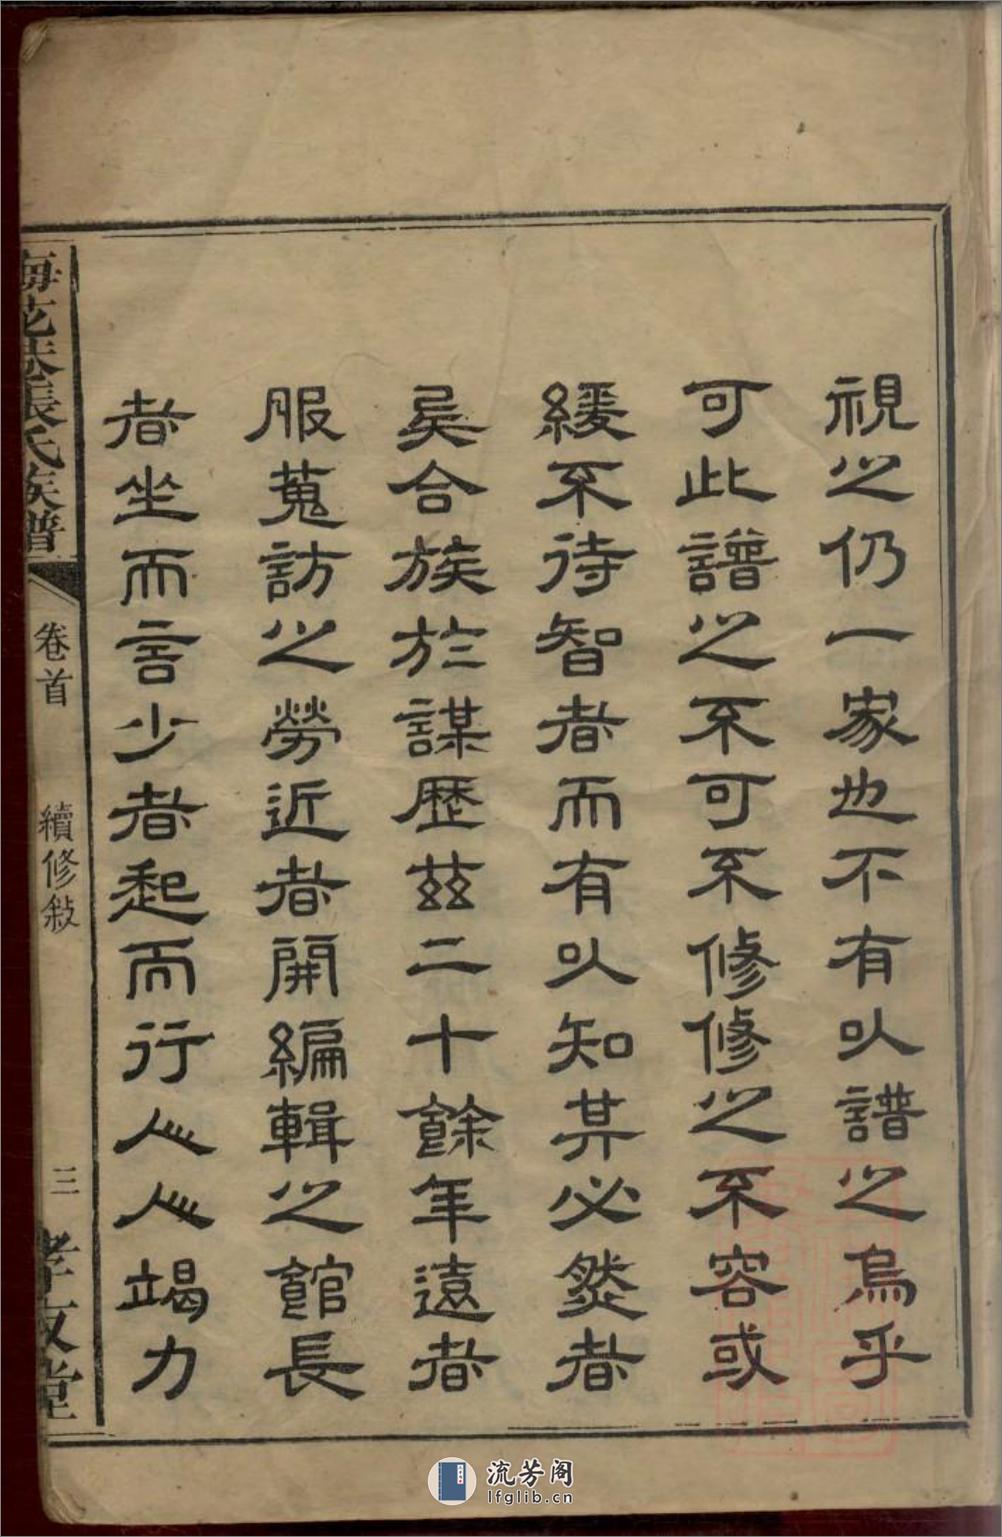 視之仍一家也不有以譜之烏乎
可此譜之不可不修修之不容或
緩不待智者而有以知其必然者
矣合族於謀歷茲二十餘年遠者
服蒐訪之勞近者開編輯之館長
者坐而言少者起而行人人竭力
梅花巷張氏族譜
卷首
續修敍
三
孝友堂
流芳阁
lfglib.cn